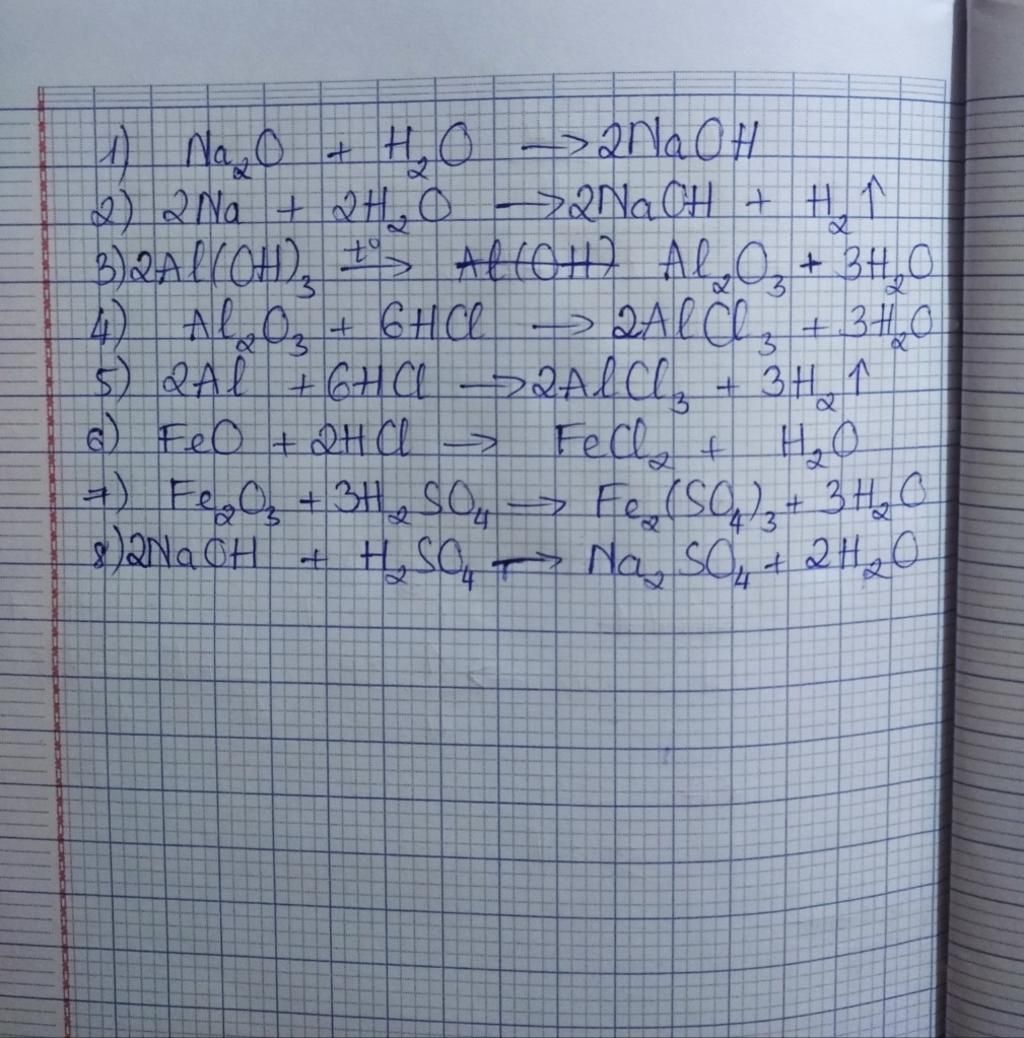 1) Na₂O + H₂O → 2NaOH
2) 2Na + 2H₂O → 2NaOH + H₂↑
3) 2Al(OH)₃ →t° ~~Al(OH)~~ Al₂O₃ + 3H₂O
4) Al₂O₃ + 6HCl → 2AlCl₃ + 3H₂O
5) 2Al + 6HCl → 2AlCl₃ + 3H₂↑
6) FeO + 2HCl → FeCl₂ + H₂O
7) Fe₂O₃ + 3H₂SO₄ → Fe₂(SO₄)₃ + 3H₂O
8) 2NaOH + H₂SO₄ → Na₂SO₄ + 2H₂O